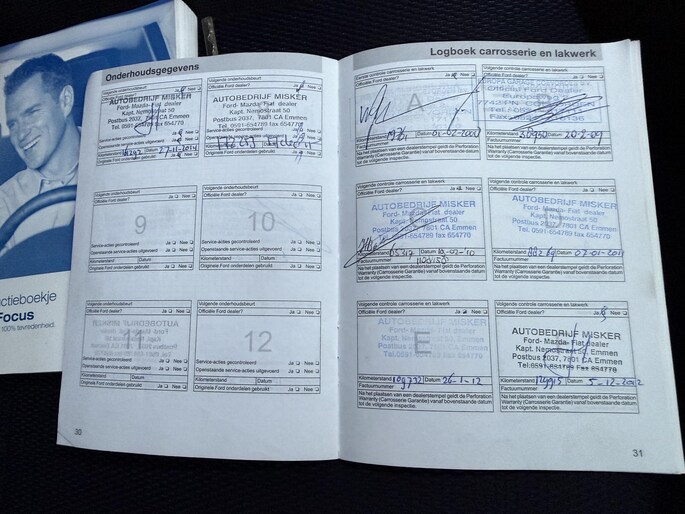 ctieboekje
Focus
100% tevredenheid.
Onderhoudsgegevens
Volgende onderhoudsbeurt
Officiële Ford dealer? Ja Nee
AUTOBEDRIJF MISKER
Ford- Mazda-Fiat dealer
Kapt. Nemostraat 50
Postbus 2037, 7801 CA Emmen
Tel. 0591-654789 fax 654770
Service-acties gecontroleerd Ja Nee
Service-acties uitgevoerd Ja Nee
Datum 27-11-2014
Originele Ford onderdelen gebruikt Ja Nee
Volgende onderhoudsbeurt
Officiële Ford dealer? Ja Nee
AUTOBEDRIJF MISKER
Ford- Mazda-Fiat dealer
Kapt. Nemostraat 50
Postbus 2037, 7801 CA Emmen
Tel. 0591-654789 fax 654770
Service-acties gecontroleerd Ja Nee
Service-acties uitgevoerd Ja Nee
Originele Ford onderdelen gebruikt Ja Nee
Volgende onderhoudsbeurt
Officiële Ford dealer? Ja Nee
9
Service-acties gecontroleerd Ja Nee
Service-acties uitgevoerd Ja Nee
Kilometerstand Datum
Originele Ford onderdelen gebruikt Ja Nee
Volgende onderhoudsbeurt
Officiële Ford dealer? Ja Nee
10
Service-acties gecontroleerd Ja Nee
Service-acties uitgevoerd Ja Nee
Kilometerstand Datum
Originele Ford onderdelen gebruikt Ja Nee
Volgende onderhoudsbeurt
Officiële Ford dealer? Ja Nee
11
Service-acties gecontroleerd Ja Nee
Service-acties uitgevoerd Ja Nee
Kilometerstand Datum
Originele Ford onderdelen gebruikt Ja Nee
Volgende onderhoudsbeurt
Officiële Ford dealer? Ja Nee
12
Service-acties gecontroleerd Ja Nee
Service-acties uitgevoerd Ja Nee
Kilometerstand Datum
Originele Ford onderdelen gebruikt Ja Nee
30
Logboek carrosserie en lakwerk
Volgende controle carrosserie en lakwerk
Officiële Ford dealer? Ja Nee
A
Datum 01-02-200
Factuurnummer
Na het plaatsen van een dealerstempel geldt de Perforation
Warranty (Carrosserie Garantie) vanaf bovenstaande datum
tot de volgende inspectie.
EUROPA GARAGE
Officiële Ford Dealer
Kilometerstand 36930 Datum 20-2-09
Factuurnummer
Na het plaatsen van een dealerstempel geldt de Perforation
Warranty (Carrosserie Garantie) vanaf bovenstaande datum
tot de volgende inspectie.
Volgende controle carrosserie en lakwerk
Officiële Ford dealer? Ja Nee
AUTOBEDRIJF MISKER
Ford- Mazda-Fiat dealer
Kapt. Nemostraat 50
Postbus 2037, 7801 CA Emmen
Tel. 0591-654789 fax 654770
Datum 10-02-'10
Factuurnummer
Na het plaatsen van een dealerstempel geldt de Perforation
Warranty (Carrosserie Garantie) vanaf bovenstaande datum
tot de volgende inspectie.
Volgende controle carrosserie en lakwerk
Officiële Ford dealer? Ja Nee
D
AUTOBEDRIJF MISKER
Ford- Mazda-Fiat dealer
Kapt. Nemostraat 50
Postbus 2037, 7801 CA Emmen
Tel. 0591-654789 fax 654770
Kilometerstand Datum 07-01-2011
Factuurnummer
Na het plaatsen van een dealerstempel geldt de Perforation
Warranty (Carrosserie Garantie) vanaf bovenstaande datum
tot de volgende inspectie.
Volgende controle carrosserie en lakwerk
Officiële Ford dealer? Ja Nee
E
AUTOBEDRIJF MISKER
Ford- Mazda-Fiat dealer
Kapt. Nemostraat 50
Postbus 2037, 7801 CA Emmen
Tel. 0591-654789 fax 654770
Kilometerstand 109732 Datum 26-1-12
Factuurnummer
Na het plaatsen van een dealerstempel geldt de Perforation
Warranty (Carrosserie Garantie) vanaf bovenstaande datum
tot de volgende inspectie.
Volgende controle carrosserie en lakwerk
Officiële Ford dealer? Ja Nee
AUTOBEDRIJF MISKER
Ford- Mazda-Fiat dealer
Kapt. Nemostraat 50
Postbus 2037, 7801 CA Emmen
Tel. 0591-654789 fax 654770
Kilometerstand Datum 5-12-2012
Factuurnummer
Na het plaatsen van een dealerstempel geldt de Perforation
Warranty (Carrosserie Garantie) vanaf bovenstaande datum
tot de volgende inspectie.
31